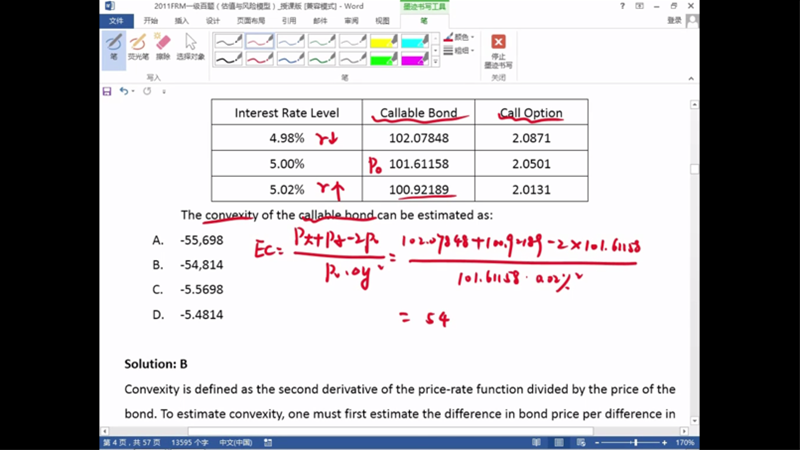 2011FRM一级百题（估值与风险模型）_授课版 [兼容模式] - Word
墨迹书写工具
文件 开始 插入 设计 页面布局 引用 邮件 审阅 视图 笔
登录
笔 荧光笔 擦除 选择对象
颜色
粗细
停止
墨迹书写
写入 笔 关闭
Interest Rate Level Callable Bond Call Option
4.98% r↓ 102.07848 2.0871
5.00% P₀ 101.61158 2.0501
5.02% r↑ 100.92189 2.0131
The convexity of the callable bond can be estimated as:
A. -55,698
B. -54,814
C. -5.5698
D. -5.4814
102.07848+100.92189-2×101.61158
EC=
101.61158·0.02%²
= 54
Solution: B
Convexity is defined as the second derivative of the price-rate function divided by the price of the
bond. To estimate convexity, one must first estimate the difference in bond price per difference in
第 4 页，共 57 页 13595 个字 中文(中国) 170%